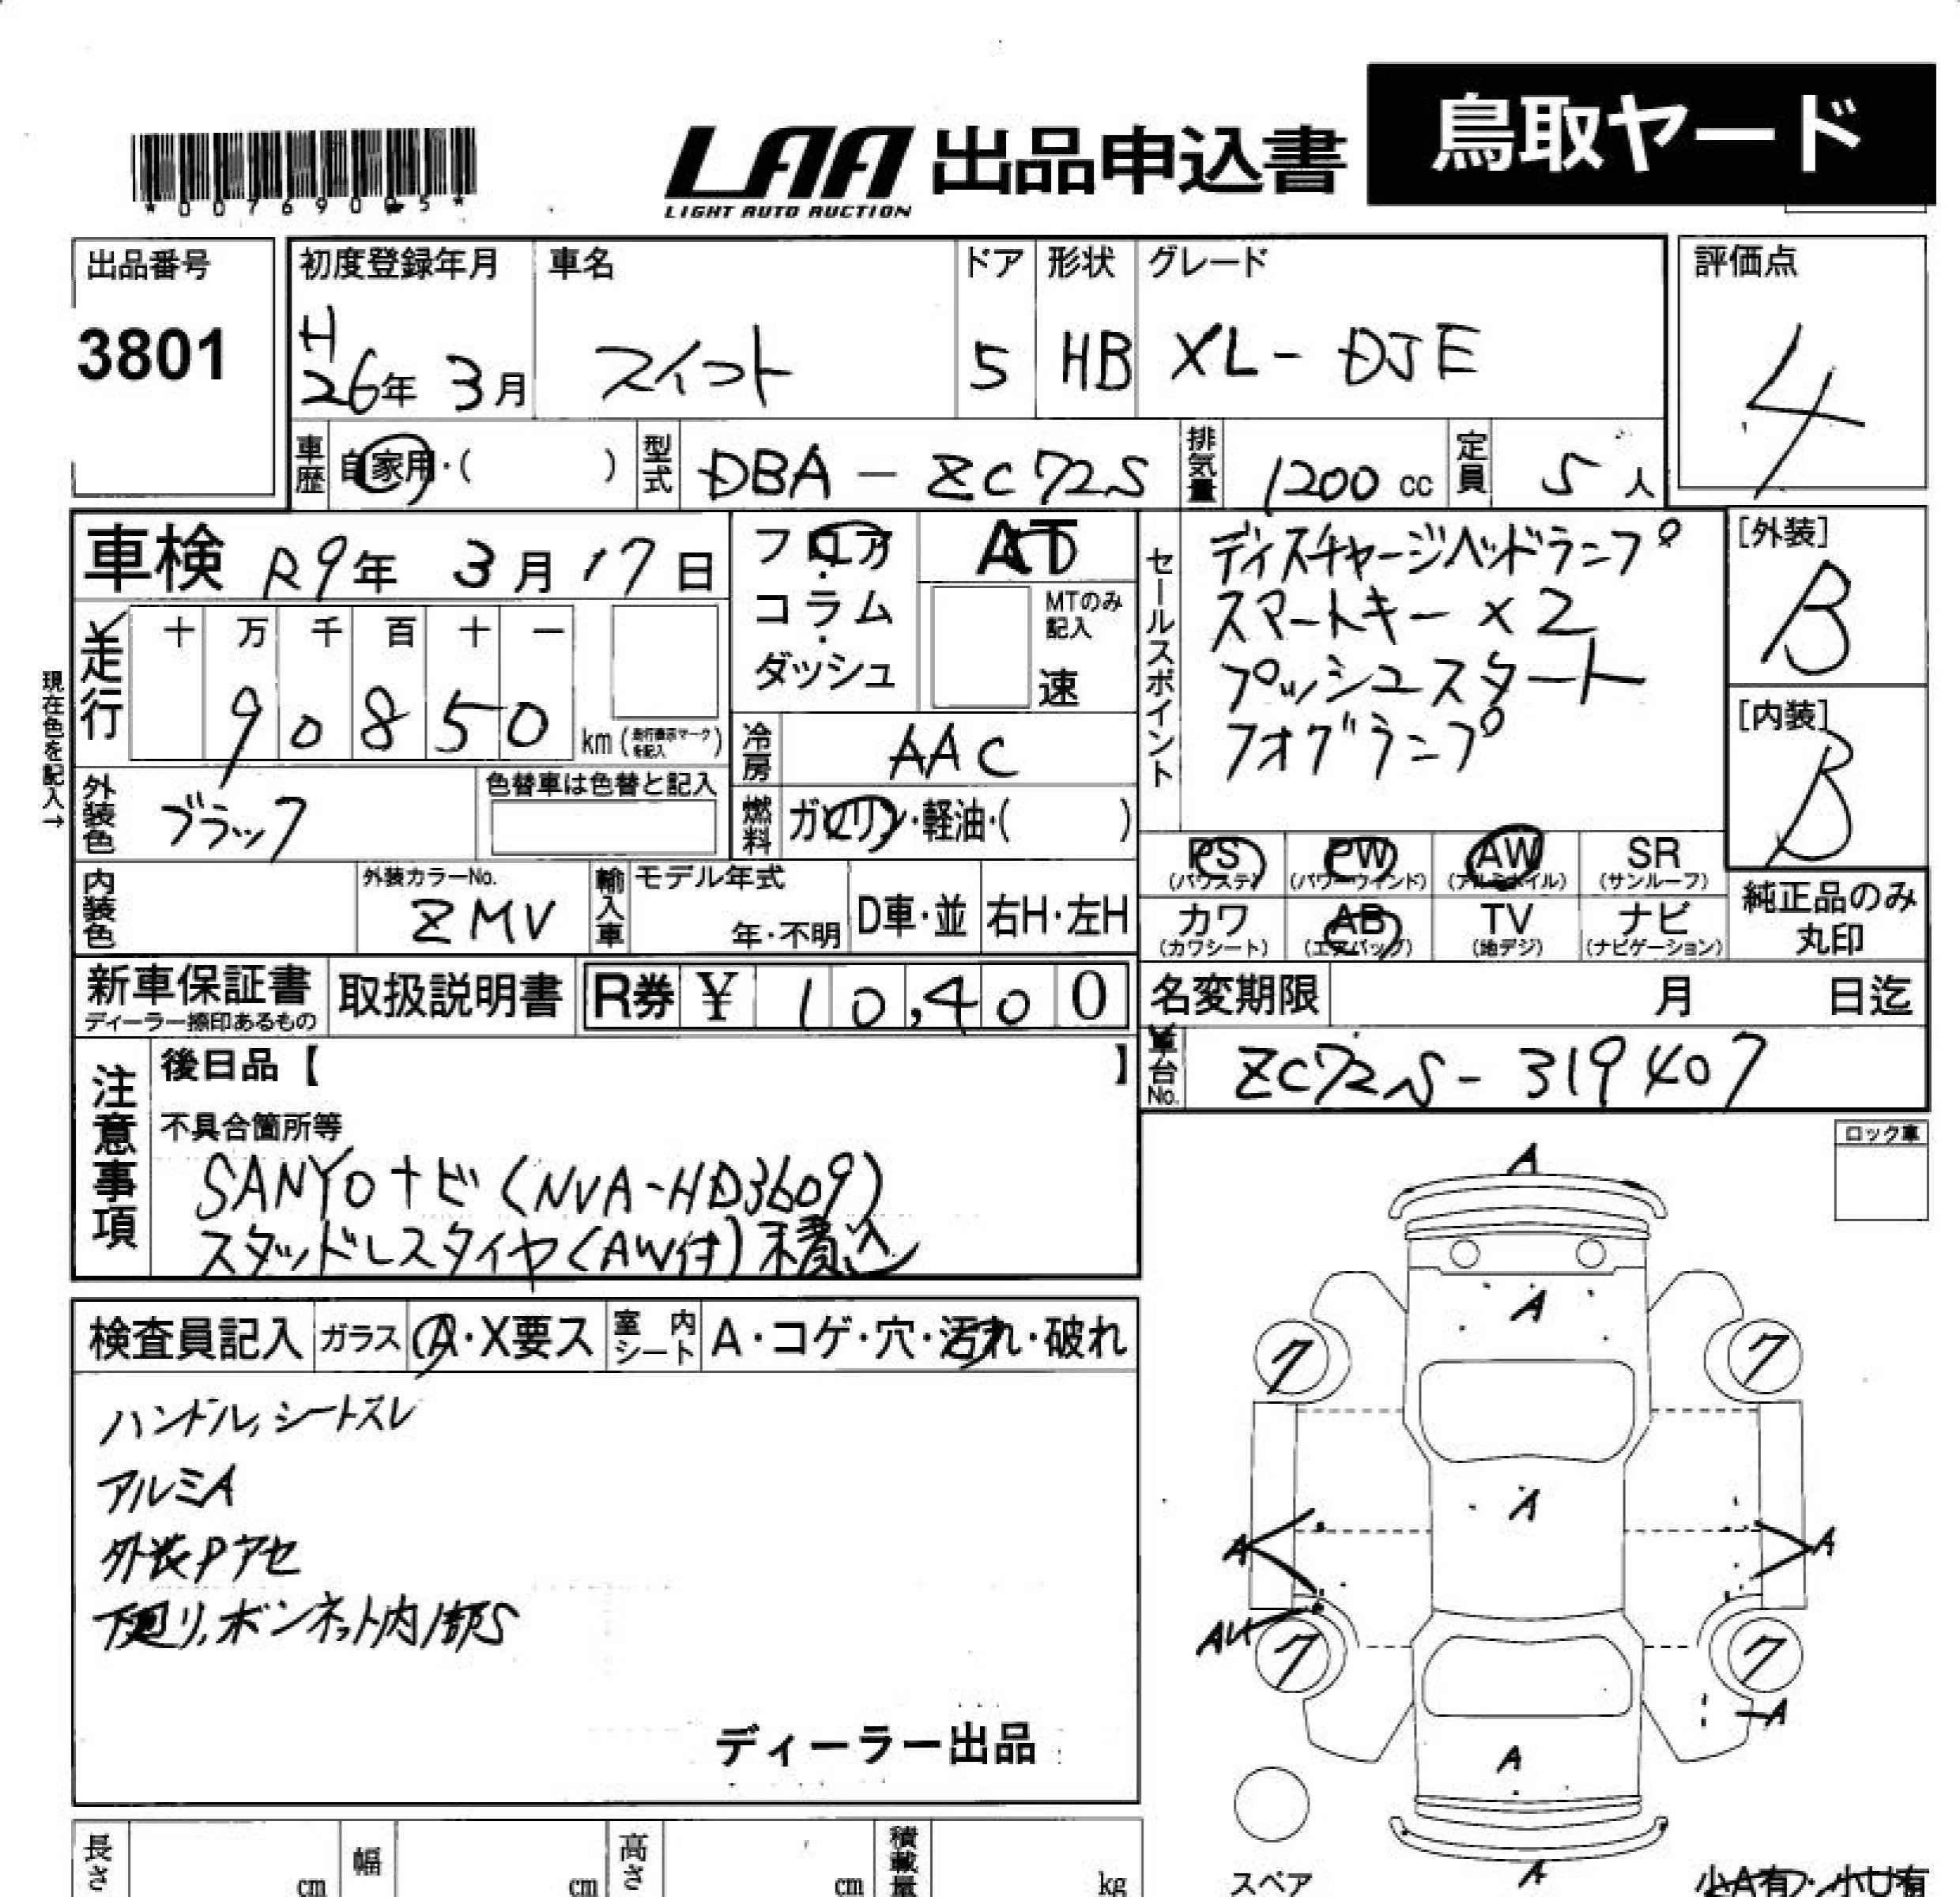 鳥取ヤード
LAA 出品申込書
LIGHT AUTO AUCTION
出品番号 初度登録年月 車名 ドア 形状 グレード 評価点
3801 H26年 3月 スイフト 5 HB XL-DJE 4
車歴 自家用・( ) 型式 DBA-ZC72S 排気量 1200cc 定員 5人
車検 R9年 3月 17日 フロア・コラム・ダッシュ AT
MTのみ記入 速
走行 十 万 千 百 十 一
90850 km (走行表示マークを記入)
現在色を記入→
冷房 AAC
外装色 ブラック 色替車は色替と記入
燃料 ガソリン・軽油・( )
セールスポイント
ディスチャージヘッドランプ
スマートキー×2
プッシュスタート
フォグランプ
[外装]
B
[内装]
B
内装色 外装カラーNo. ZMV 輸入車 モデル年式 年・不明 D車・並 右H・左H
PS (パワステ) PW (パワーウィンド) AW (アルミホイル) SR (サンルーフ)
カワ (カワシート) AB (エアバッグ) TV (地デジ) ナビ (ナビゲーション)
純正品のみ丸印
新車保証書 取扱説明書 R券 ¥ 10,400
ディーラー捺印あるもの
名変期限 月 日迄
車台No. ZC72S-319407
注意事項
後日品【 】
不具合箇所等
SANYOナビ(NVA-HD3609)
スタッドレスタイヤ(AW付)積込
ロック車
検査員記入 ガラス A・X要ス 室内シート A・コゲ・穴・汚れ・破れ
ハンドル,シートスレ
アルミA
外装Pアセ
下廻り,ボンネット内部S
ディーラー出品
A
A
ク ク
A
A A
AU
ク ク
A
A
A
スペア
小A有・小U有
長さ cm 幅 cm 高さ cm 積載量 kg